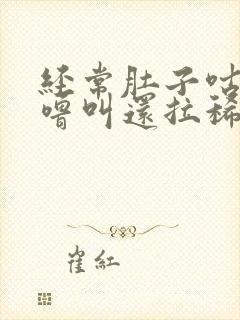 經常肚子咕
嚕叫還拉稀
崔紅